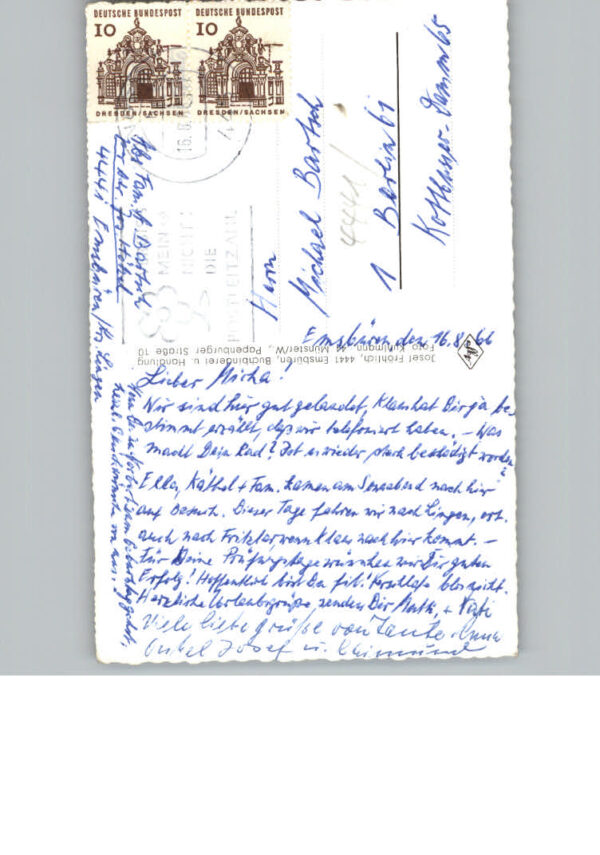 DEUTSCHE BUNDESPOST
10
DRESDEN/SACHSEN
DEUTSCHE BUNDESPOST
10
DRESDEN/SACHSEN
NICHT
DIE
POSTLEITZAHL
Abs. Fam. A. Bartsch
4441 Emsbüren/Krs. Lingen
Herrn
Michael Bartsch
4441
1 Berlin 61
Kottbuser-Damm 65
Josef Fröhlich, 4441 Emsbüren, Buchbinderei u. Handlung
Foto Kuhlmann, 44 Münster/W., Papenburger Straße 10
Emsbüren, den 16.8.66
Lieber Micha!
Wir sind hier gut gelandet, Klaus hat Dir ja be
stimmt erzählt, daß wir telefoniert haben. – Was
macht Dein Rad? Ist es wieder stark beschädigt worden?
Ella, Käthel + Fam. kamen am Sonnabend nach hier
auf Besuch. Dieser Tage fahren wir nach Lingen, evt.
auch nach Fritzlar wenn Klaus nach hier kommt. –
Für Deine Prüfungstage wünschen wir Dir guten
Erfolg! Hoffentlich bist Du fit!
Herzliche Urlaubsgrüße senden Dir Mutti + Vati
Viele liebe Grüße von Tante Anna
Onkel Josef u.